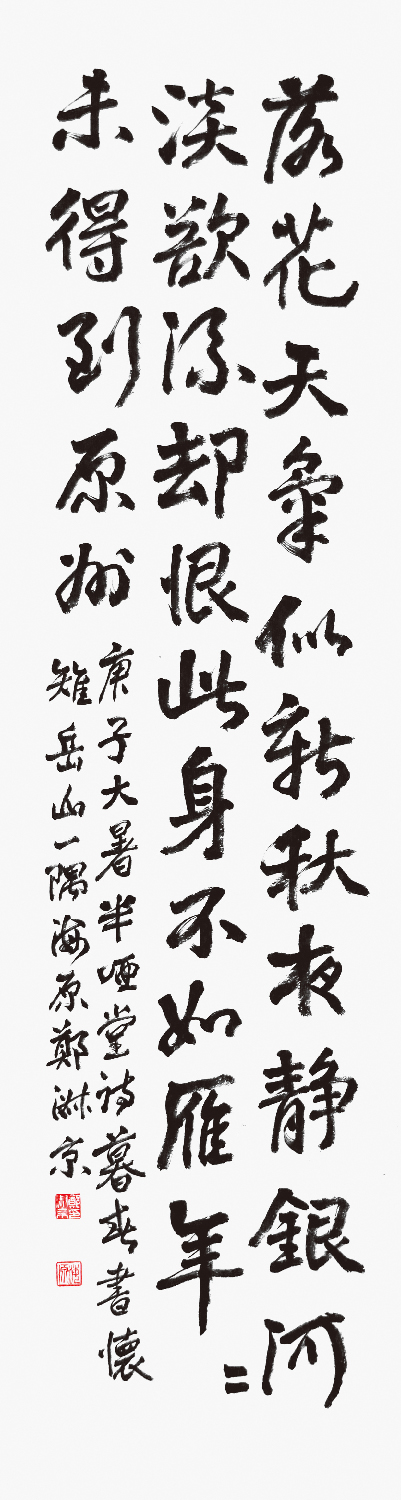 落花天氣似新秋夜静銀河
淡欲流却恨此身不如雁年〻
未得到原州
庚子大暑半啞堂詩暮春書懷
雉岳山一隅海原鄭 京